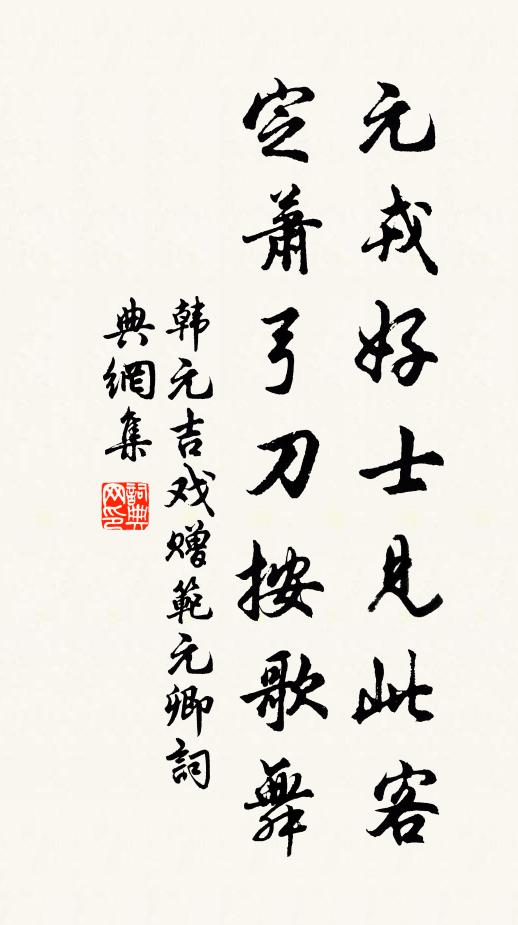 元戎好士見此客
定蕭弓刀按歌舞
韩元吉戏赠範元卿詞
典網集
詞典
网印